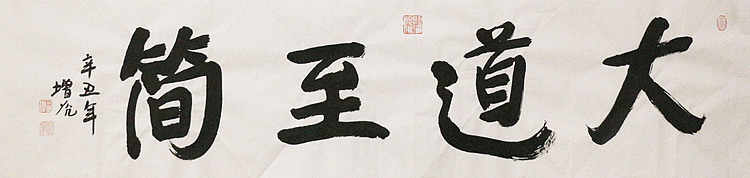 大道至简
辛丑年
增允